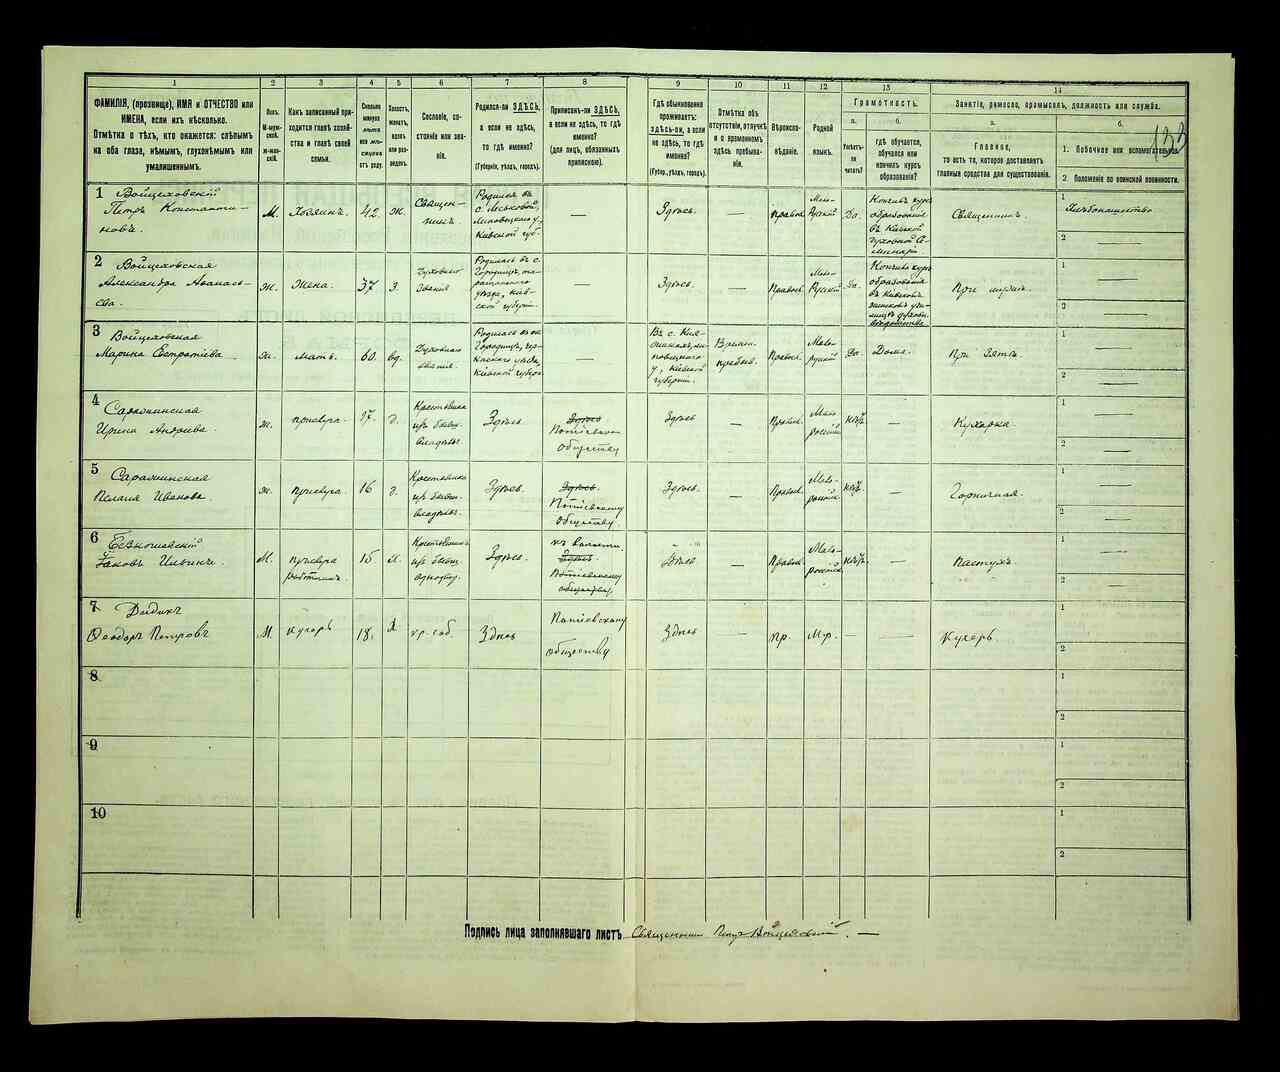 1
2
3
4
5
6
7
8
9
10
11
12
13
14
ФАМИЛІЯ, (прозвище), ИМЯ и ОТЧЕСТВО или
ИМЕНА, если ихъ нѣсколько.
Отмѣтка о тѣхъ, кто окажется: слѣпымъ
на оба глаза, нѣмымъ, глухонѣмымъ или
умалишеннымъ.
Полъ.
М-мужской.
ж-женскій.
Какъ записанный приходится главѣ хозяйства и главѣ своей
семьи.
Сколько
минуло
лѣтъ
или мѣсяцевъ
отъ роду.
Холостъ,
женатъ,
вдовъ
или разведенъ.
Сословіе, состояніе или званіе.
Родился-ли ЗДѢСЬ,
а если не здѣсь,
то гдѣ именно?
(Губернія, уѣздъ, городъ).
Приписанъ-ли ЗДѢСЬ,
а если не здѣсь, то гдѣ
именно?
(для лицъ, обязанныхъ
припискою).
Гдѣ обыкновенно
проживаетъ:
здѣсь-ли, а если
не здѣсь, то гдѣ
именно?
(Губер., уѣздъ, городъ).
Отмѣтка объ
отсутствіи, отлучкѣ
и о временномъ
здѣсь пребываніи.
Вѣроисповѣданіе.
Родной
языкъ.
Грамотность.
а.
Умѣетъ-ли
читать?
б.
гдѣ обучается,
обучался или
кончилъ курсъ
образованія?
Занятіе, ремесло, промыселъ, должность или служба.
а.
Главное,
то есть то, которое доставляетъ
главныя средства для существованія.
б.
1. Побочное или вспомогательное
2. Положеніе по воинской повинности.
133
1 Войцеховскій
Петръ Константиновъ.
М. Хозяинъ. 42 ж.
Священникъ.
Родился въ
с. Лѣськовой,
Липовецкаго у.
Кіевской губ.
—
Здѣсь.
—
Правос.
Малорусскій
Да.
Кончилъ курсъ
образованія
въ Кіевской
духовной Семинаріи
Священникъ.
1 Хлѣбопашество
2 —
2 Войцеховская
Александра Аѳанасьева.
ж. Жена. 37 З.
Духовнаго
званія
Родилась въ с.
Городищѣ,
уѣзда, Кіевской губерніи.
—
Здѣсь.
—
Правос.
Малорусскій
Да.
Кончила курсъ
образованія
въ Кіевскомъ
женскомъ училищѣ духовн.
вѣдомства
При мужѣ.
1 —
2 —
3 Войцеховская
Марина Евстратіева
ж. Мать. 60. вд.
Духовнаго
званія.
Родилась въ
Городищѣ,
уѣзда,
Кіевской губерн.
—
Въ с.
Липовецкаго
у., Кіевской
губерніи.
Времен.
пребыв.
Правос.
Малорусскій
Да.
Дома.
При Зятѣ.
1 —
2 —
4
Ирина Андреева.
ж. прислуга. 27. д.
Крестьянка
изъ бывш.
владѣл.
Здѣсь.
Здѣсь
Потіевскому
обществу
Здѣсь
—
Правос.
Малороссій
нѣтъ
—
Кухарка
1 —
2 —
5
Пелагія Иванова.
ж. прислуга. 16 д.
Крестьянка
изъ бывш.
владѣл.
Здѣсь.
Здѣсь.
Потіевскому
обществу.
Здѣсь.
—
Правос.
Малороссій
нѣтъ
—
Горничная.
1 —
2 —
6
Яковъ Ильинъ.
М. прислуга
работникъ. 15 х.
Крестьянинъ
изъ бывш.
Здѣсь
къ волости.
Здѣсь.
Потіевскому
обществу.
Здѣсь
—
Правос.
Малороссій
нѣтъ
—
Пастухъ
1 —
2 —
7 Дидикъ
Ѳеодоръ Петровъ
М. кучеръ 18. х
кр. соб.
Здѣсь
Потіевскому
обществу
Здѣсь
—
пр.
М.р.
—
—
Кучеръ.
1
2
8
1
2
9
1
2
10
1
2
Подпись лица заполнявшаго листъ Священникъ Петръ Войцеховскій. —